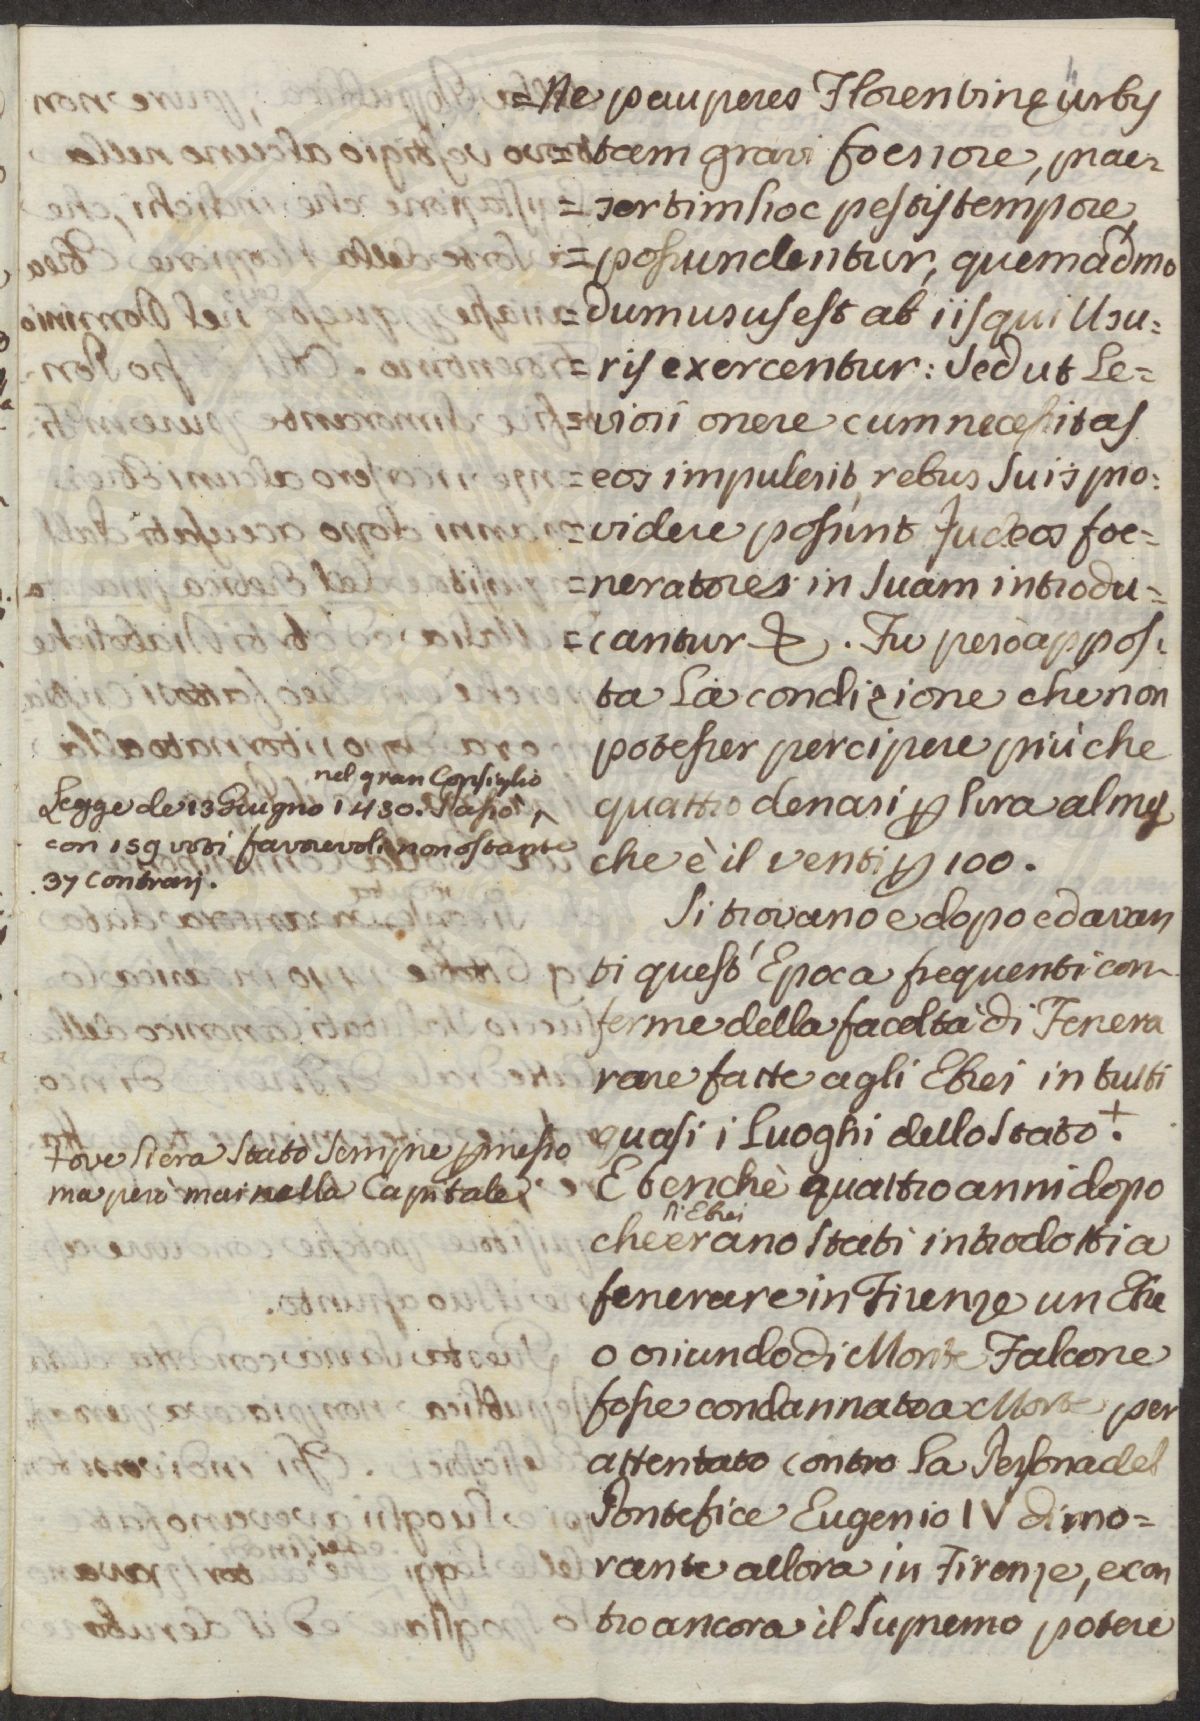 =Ne pauperes Florentinę urbis
=tam gravi foenore, prae=
=sertim hoc pestis tempore,
=possundentur, quemadmo
=dum usus est ab iis qui Usu=
=ris exercentur: Sed ut Le=
=viori onere cum necessitas
=eos impulerit, rebus suis pro:
=videre possint Judeos foe=
=neratores in suam introdu=
=cantur &. Fu però appos:
ta La condizione che non
potesser percipere più che
quattro denari p lira al mese
che è il venti p 100.
nel gran Consiglio
Legge de 13 Giugno 1430. Passò ^
con 159 voti favorevoli nonostante
37 contrarj.
Si trovano e dopo ed avan
ti quest' Epoca frequenti con
ferme della facoltà di Fenera
rare fatte agli Ebrei in tutti
quasi i Luoghi dello Stato +.
+ ove si era stato sempre pmesso
ma però mai nella Capitale.
E benchè quattro anni dopo
li Ebrei
che erano stati introdotti a
fenerare in Firenze un Ebre
o oriundo di Monte Falcone
fosse condannato a Morte per
attentato contro la Persona del
Pontefice Eugenio IV dimo=
rante allora in Firenze, e con
tro ancora il Supremo potere